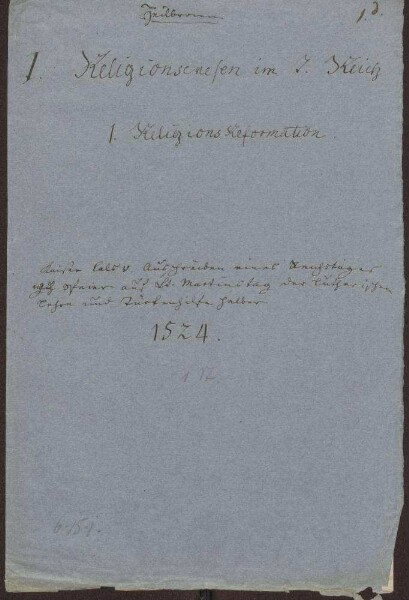 Heilbronn
1 d.
I. Religionswesen im T. Reich
1. Religions Reformation.
Kaiser Carls V. Ausschreiben eines Reichstages
nach Speier auf St. Martinstag der lutherischen
Lehre und Türkenhilfe halber
1524.